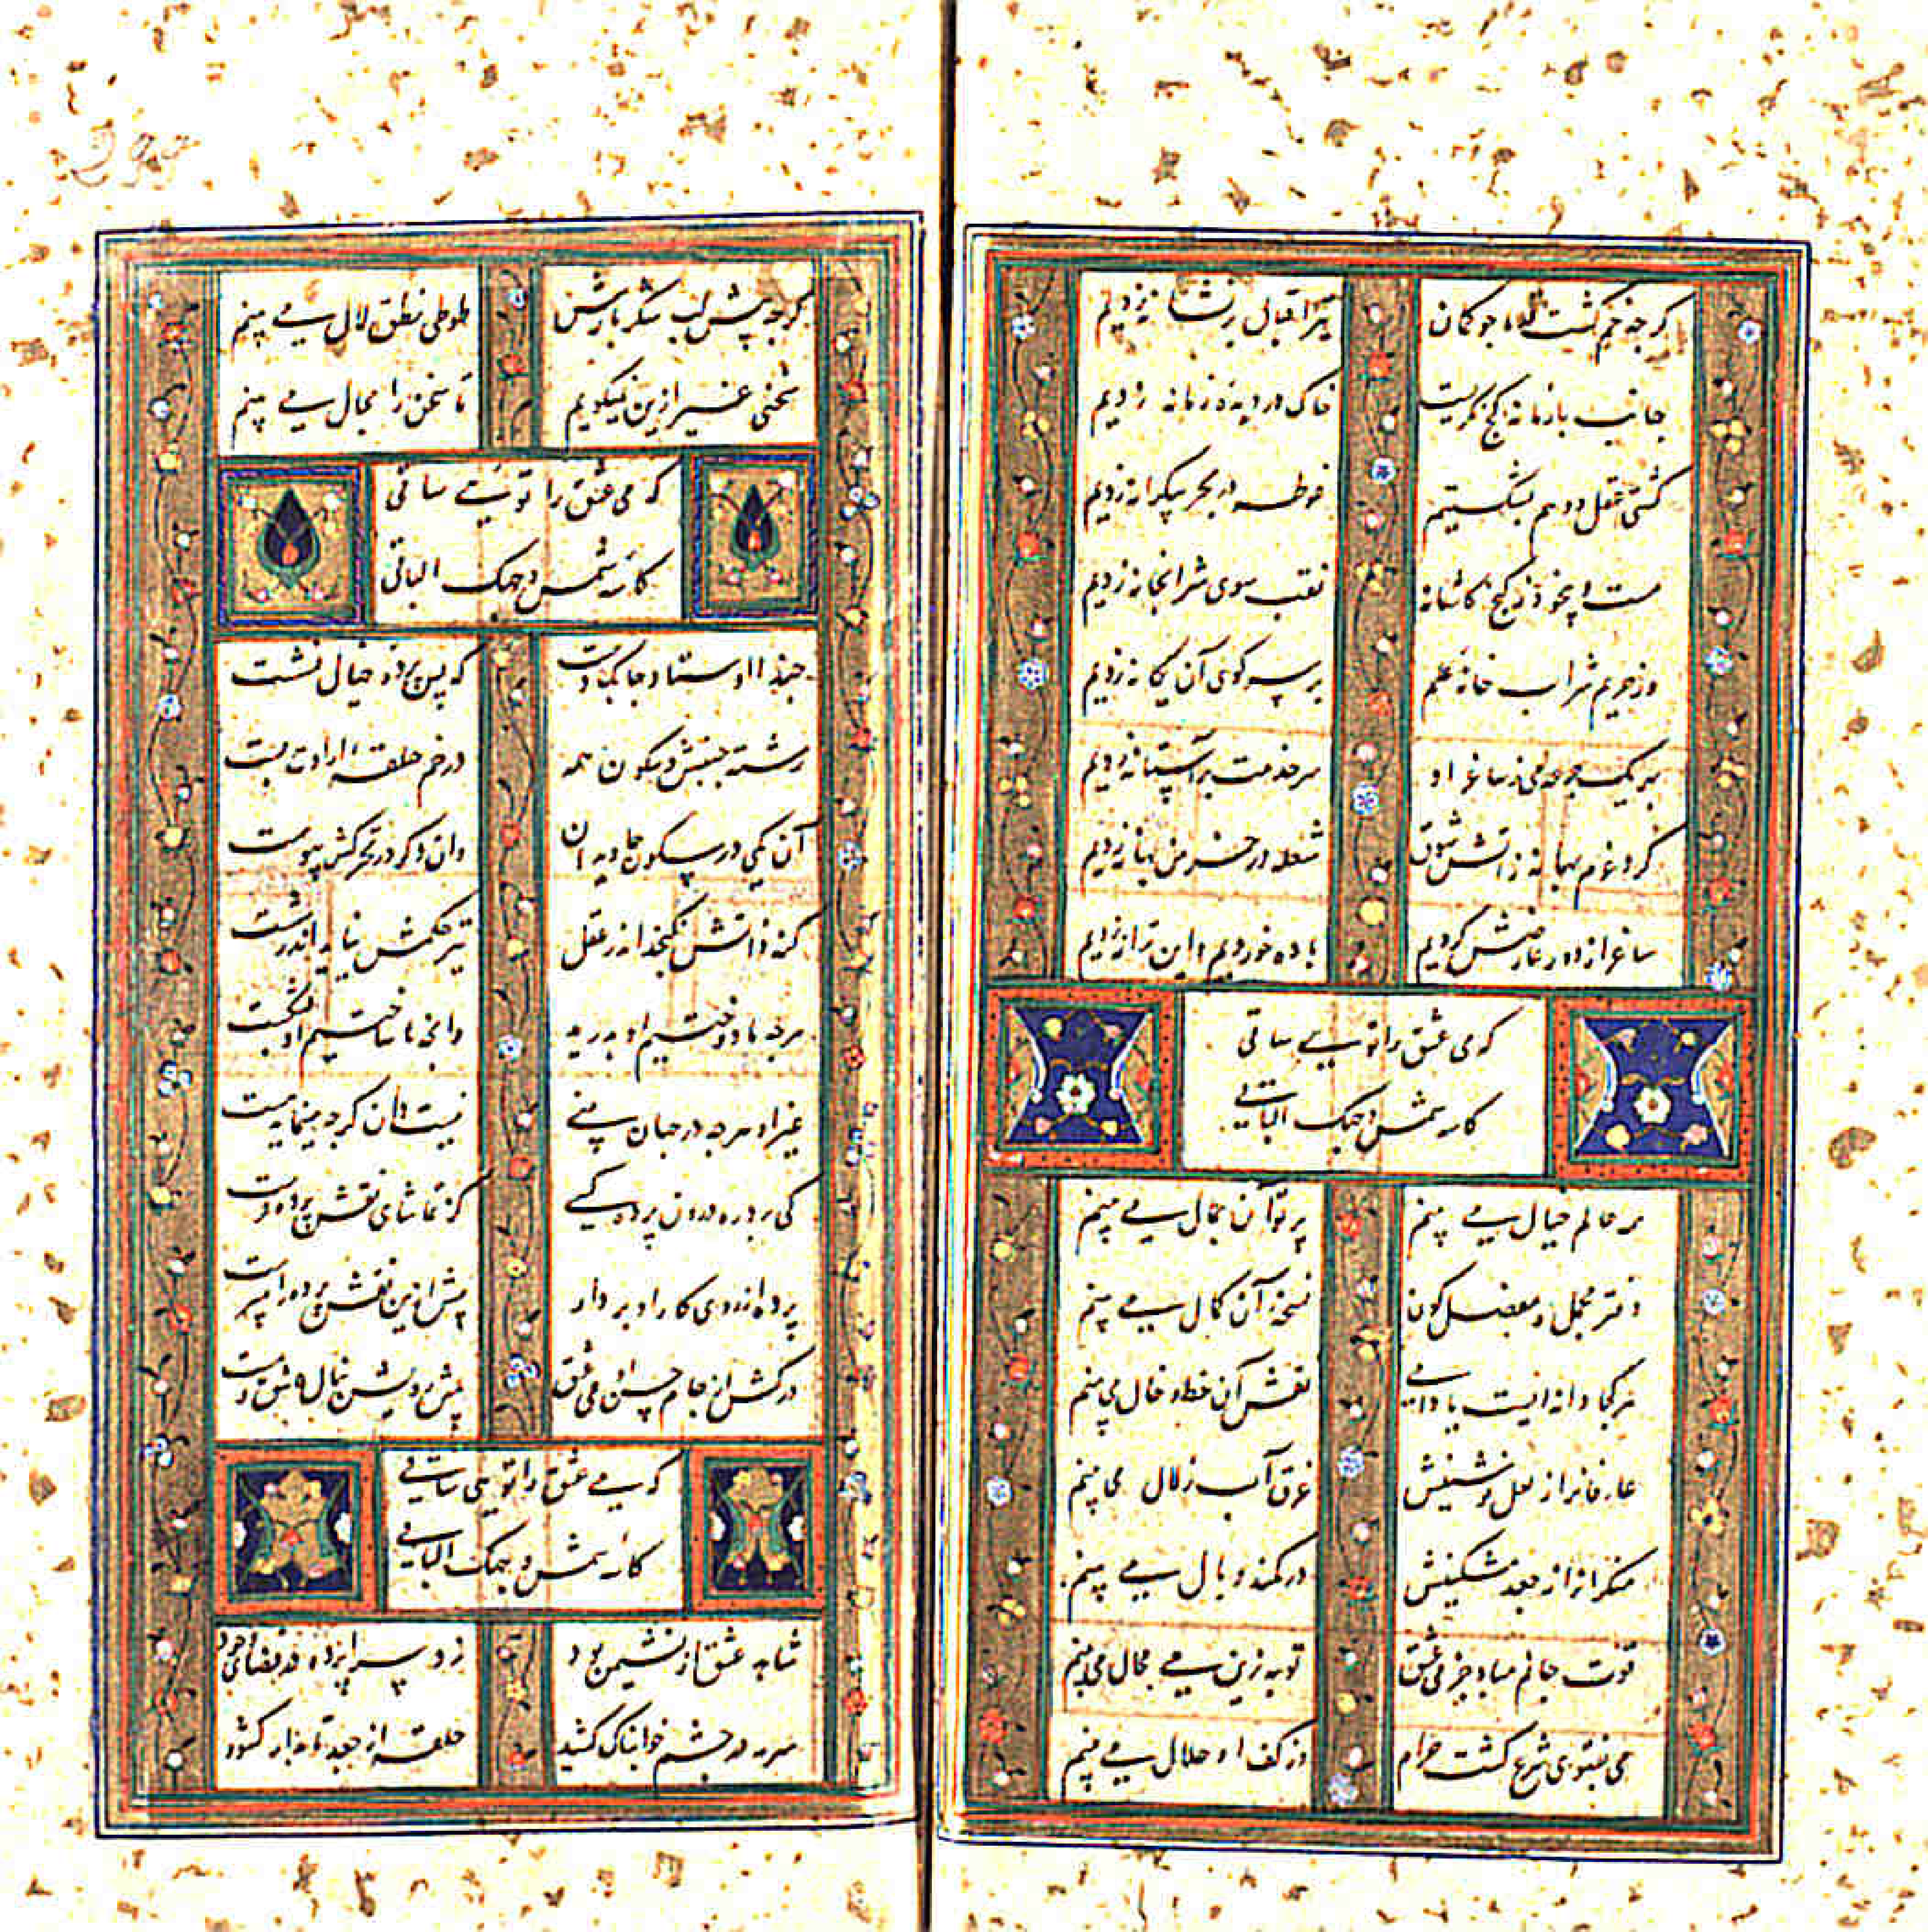 کرچه خم کشت قد ما چو کمان تیر اقبال بر نشانه زدیم
جانب ما زمانه کج نکریست خاک در دیده زمانه زدیم
کشتی عقل و وهم بشکستیم غوطه در بحر بیکرانه زدیم
مست و بیخود ز کنج کاشانه نقب سوی شرابخانه زدیم
وز حریم شراب خانه علم بر سر کوی آن یکانه زدیم
به یک جرعه می ز ساغر او سر خدمت بر آستانه زدیم
کرد غم بهانه ز آتش شوق شعله در خرمن بهانه زدیم
ساغر از دور عارضش کردیم باده خوردیم و این ترانه زدیم
که می عشق را تویی ساقی
کاسه شمس وجهک الباقی
همه عالم خیال می بینم پرتو آن جمال می بینم
دفتر مجمل و مفصل کون نسخه آن کمال می بینم
هر کجا دانه ایست یا دامی نقش آن خط و خال می بینم
عارفانرا ز لعل نوشینش غرق آب زلال می بینم
منکرانرا ز جعد مشکینش در کمند وبال می بینم
قوت جانم مباد جز می عشق توبه زین می محال می بینم
می بفتوی شرع کشت حرام وز کف او حلال می بینم
کرچه پیش لب شکر بارش طوطی نطق لال می بینم
سخنی غیر ازین نمیکویم تا سخن را مجال می بینم
که می عشق را تویی ساقی
کاسه شمس وجهک الباقی
حبذا اوستاد چابک دست که پس پرده خیال نشست
رشته جنبش و سکون همه در خم حلقه ارادت بست
آن یکی در سکون جاویدان وان دکر در تحرکش پیوست
کنه ذاتش نکنجد اندر عقل تیر حکمش نیاید اندر شست
هرچه ما دوختیم او بدرید وانچه ما ساختیم او بشکست
غیر او هرچه در جهان بینی نیست دان کرچه مینماید هست
کی برد ره درون پرده کسی کز تماشای نقش پرده پرست
پرده از روی کار او بردار بیش ازین نقش پرده را مپرست
درکش از جام حسن او می عشق پیش رویش بنال عاشق و مست
که می عشق را تویی ساقی
کاسه شمس وجهک الباقی
شاهد عشق از نشیمن بود زد سراپرده در فضای وجود
سرمه در چشم خوابناک کشید حلقه از جعد تابدار کشود